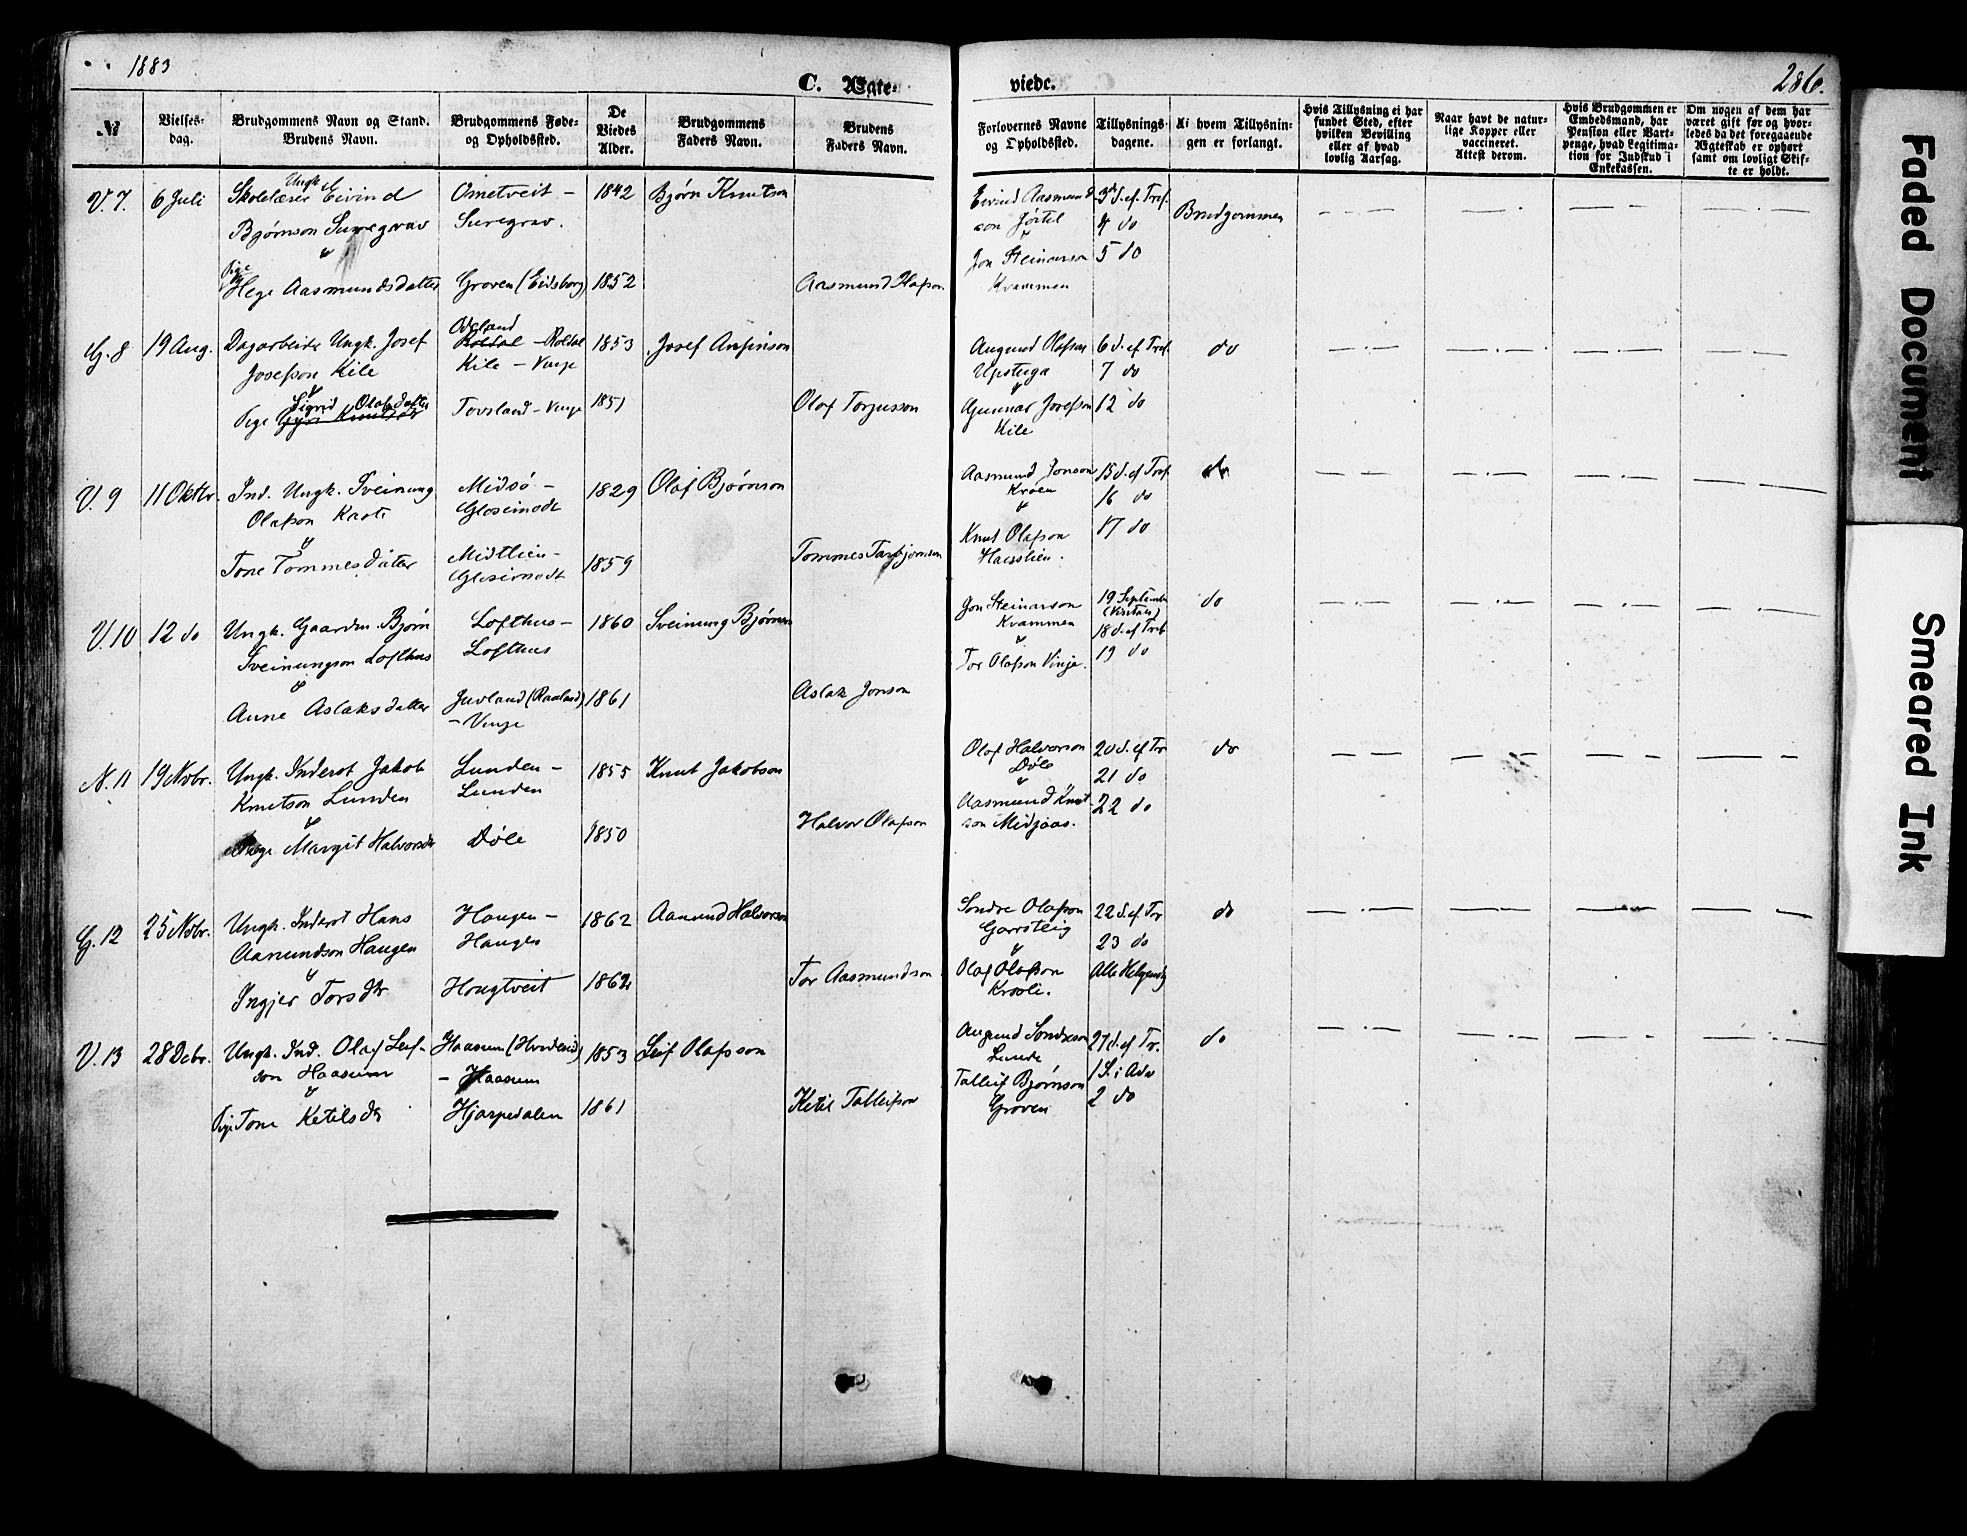 1883
C. Ægte-
viede.
286.
№
Vielses-
dag.
Brudgommens Navn og Stand.
Brudens Navn.
Brudgommens Føde-
og Opholdssted.
De
Viedes
Alder.
Brudgommens
Faders Navn.
Brudens
Faders Navn.
Forlovernes Navne
og Opholdssted.
Tillysnings-
dagene.
Af hvem Tillysnin-
gen er forlangt.
Hvis Tillysning ei har
fundet Sted, efter
hvilken Bevilling
eller af hvad
lovlig Aarsag.
Naar havt de natur-
lige Kopper eller
vaccineret.
Attest derom.
Hvis Brudgommen er
Embedsmand, har
Pension eller Vart-
penge, hvad Legitima-
tion for Indskud i
Enkekassen.
Om nogen af dem har
været gift før og hvor-
ledes da det foregaaende
Ægteskab er ophørt
samt om lovligt Skif-
te er holdt.
V. 7. 6 Juli
Ungk.
Skolelærer Eivind
Bjørnson Suregrav
&
Pige
Hege Aasmundsdatter
Ometveit -
Suregrav.
Groven (Eidsborg)
1842
1852
Bjørn Knutson
Aasmund Olafson
Eivind Aasmund
son Jørtil
&
Jon Steinarson
Kvammen
3d S. ef. Tref.
4 do
5 do
Brudgommen
G. 8 19 Aug.
Dagarbeider Ungk. Josef
Josefson Kile
&
Sigrid Olafsdatter
Pige
Røldal - Røldal
Kile - Vinje
Tovsland - Vinje
1853
1851
Josef Anfinson
Olaf Torjusson
Augund Olafson
Upstuga
&
Gunnar Josefson
Kile
6 S. ef Tref.
7 do
12 do
do
V. 9 11 Oktbr.
Ind. Ungk. Sveinung
Olafson
&
Tone Tommesdatter
Midsø -
Glosimodt
Midtlien -
Glosimodt
1829
1859
Olaf Bjørnson
Tommes Tarbjørnson
Aasmund Jonson
&
Knut Olafson
15 S. ef Tref.
16 do
17 do
do
V. 10 12 do
Ungk. Gaardm. Bjørn
Sveinungson Lofthus
&
Anne Aslaksdatter
Lofthus -
Lofthus
Juvland (Rauland)
- Vinje
1860
1861
Sveinung Bjørnson
Aslak Jonson
Jon Steinarson
Kvammen
&
Tor Olafson Vinje.
19 September
(Visitats)
18 S. ef Tref.
19 do
do
N. 11 19 Novbr.
Ungk. Inderst Jakob
Knutson Lunden
&
Pige Margit Halvorsdr
Lunden -
Lunden
Døle
1855
1850
Knut Jakobson
Halvor Olafson
Olaf Halvorson
Døle
&
Aasmund Knut-
son Midjaas.
20 S. ef Tr
21 do
22 do
do
G. 12 25 Novbr.
Ungk. Inderst Hans
Aanundson Haugen
&
Ingjer Torsdtr
Haugen -
Haugen
Hougtveit
1862
1862
Aanund Halvorson
Tor Aasmundson
Sondre Olafson
&
Olaf Olafson
22 S. ef. Tr
23 do
Alle Helgensdg
do
V. 13 28 Debr.
Ungk. Ind. Olaf Leif-
son Haasum
&
Pige Tone Ketilsdtr
Haasum (Hvideseid)
- Haasum
Hjarpedalen
1853
1861
Leif Olafsson
Ketil Tallefson
Augund Sondreson
Lunde
Talleif Bjørnson
Groven
27 S. ef Tr.
1 S. i Adv
2 do
do
Faded Document
Smeared Ink